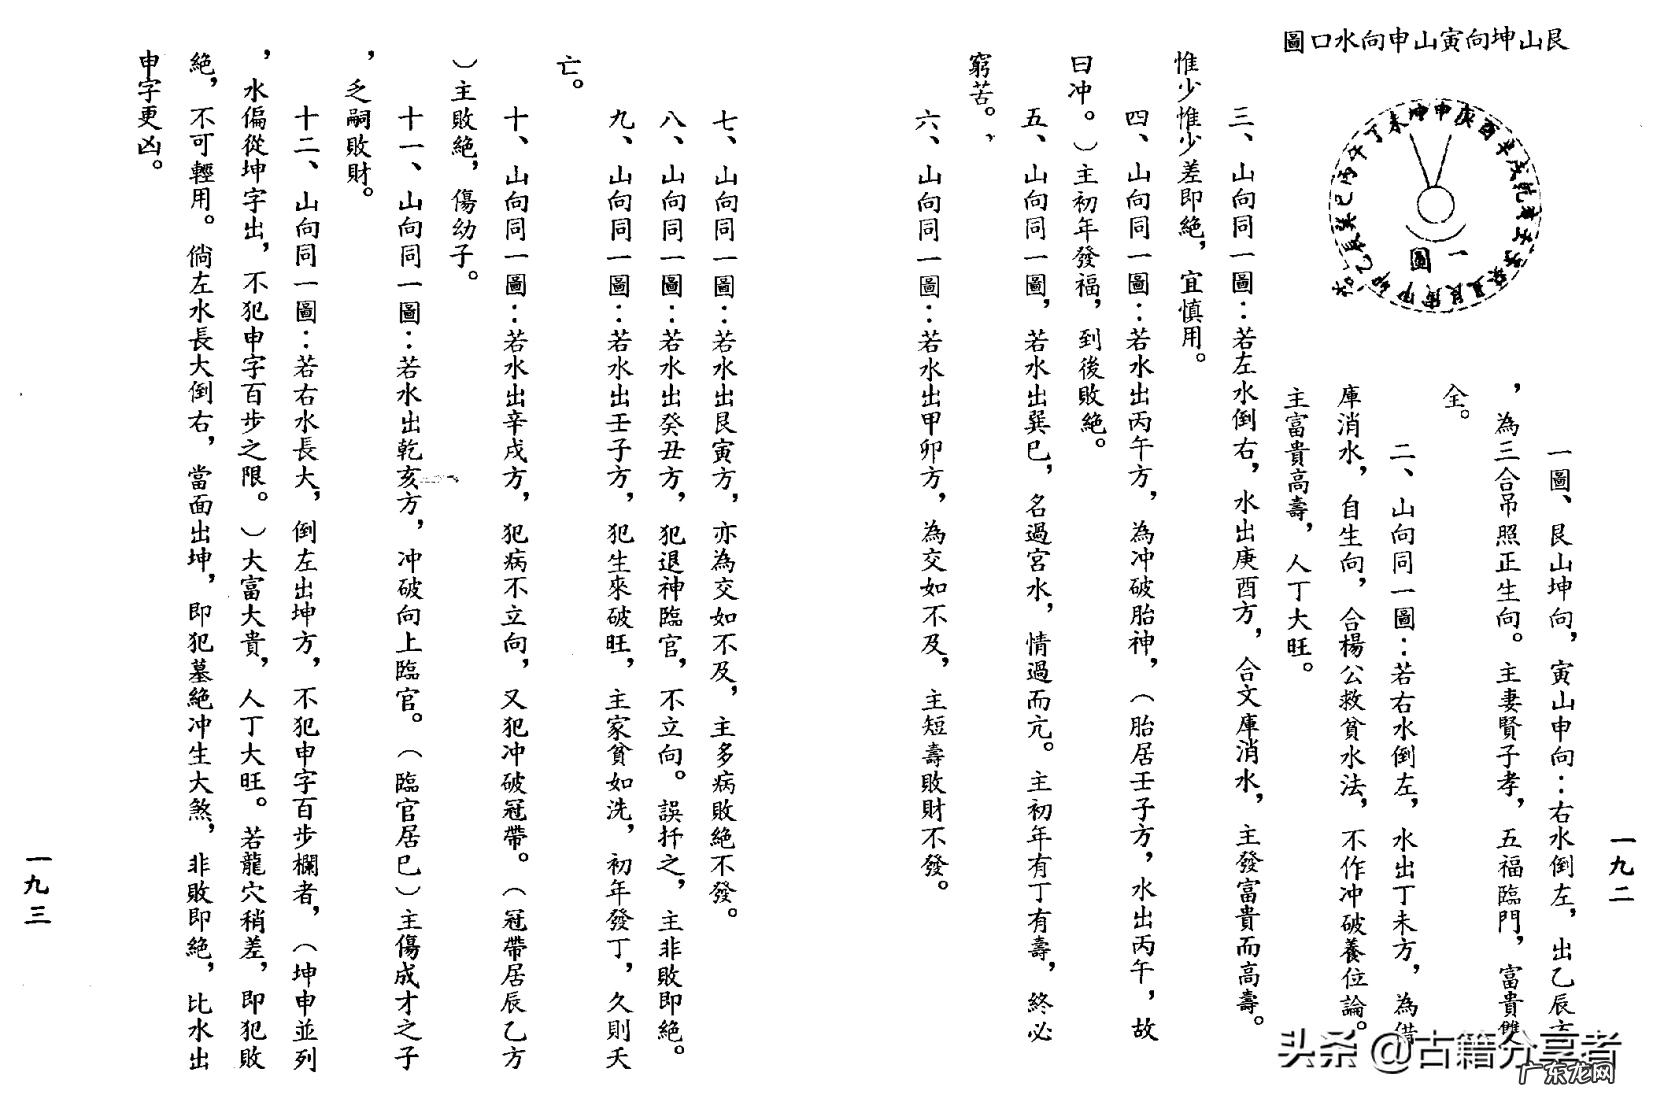 艮山坤向寅山申向水口圖
坤申庚酉辛戌乾亥壬子癸丑艮寅甲卯乙辰巽巳丙午丁未
一圖
一圖、艮山坤向，寅山申向：右水倒左，出乙辰方
，為三合吊照正生向。主妻賢子孝，五福臨門，富貴雙
全。
二、山向同一圖：若右水倒左，水出丁未方，為借
庫消水，自生向，合楊公救貧水法，不作冲破養位論。
主富貴高壽，人丁大旺。
一九二
三、山向同一圖：若左水倒右，水出庚酉方，合文庫消水，主發富貴而高壽。
惟少惟少差即絶，宜慎用。
四、山向同一圖：若水出丙午方，為冲破胎神，（胎居壬子方，水出丙午，故
曰冲。）主初年發福，到後敗絶。
五、山向同一圖，若水出巽巳，名過宮水，情過而亢。主初年有丁有壽，終必
窮苦。
六、山向同一圖：若水出甲卯方，為交如不及，主短壽敗財不發。
七、山向同一圖：若水出艮寅方，亦為交如不及，主多病敗絶不發。
八、山向同一圖：若水出癸丑方，犯退神臨官，不立向。誤扦之，主非敗即絶。
九、山向同一圖：若水出壬子方，犯生來破旺，主家貧如洗，初年發丁，久則夭
亡。
十、山向同一圖：若水出辛戌方，犯病不立向，又犯冲破冠帶。（冠帶居辰乙方
）主敗絶，傷幼子。
十一、山向同一圖：若水出乾亥方，冲破向上臨官。（臨官居巳）主傷成才之子
，乏嗣敗財。
十二、山向同一圖：若右水長大，倒左出坤方，不犯申字百步欄者，（坤申並列
，水偏從坤字出，不犯申字百步之限。）大富大貴，人丁大旺。若龍穴稍差，即犯敗
絶，不可輕用。倘左水長大倒右，當面出坤，即犯墓絶冲生大煞，非敗即絶，比水出
申字更凶。
一九三
头条 @古籍分享者
广东龙网